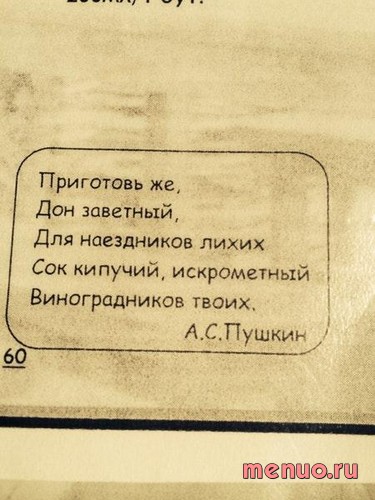 Приготовь же,
Дон заветный,
Для наездников лихих
Сок кипучий, искрометный
Виноградников твоих.
А.С.Пушкин
60
menuo.ru